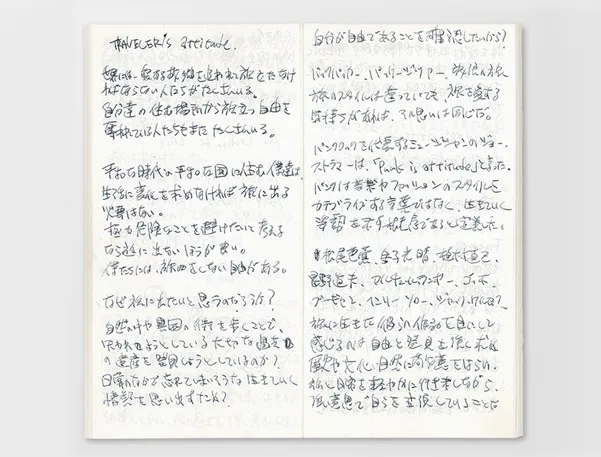 TRAVELER's attitude.
世界には、自分の故郷を追われ旅立たなけ
ればならない人たちがたくさんいる。
自分達の住む場所から旅立つ自由を
奪われている人たちもまたたくさんいる。
平和な時代の平和な国に住む僕達は、
生活に変化を求めなければ旅に出る
必要はない。
極力危険なことを避けたいと考える
なら旅に出ないほうが良い。
僕たちには、旅をしない自由がある。
なぜ旅に出たいと思うのだろうか?
自然の中や異国の街を歩くことで、
失われようとしている大切な過去
の遺産を発見しようとしているのか?
日常のなかで忘れてしまいそうな生きていく
情熱を思い出すため?
自分が自由であることを確認したいから?
バックパッカー、バッグジャー、旅
旅のスタイルは違っていても、旅を愛する
気持ちがあれば、その思いは同じだ。
パンクロックを代表するミュージシャンのジョー・
ストラマーは、「Punk is attitude」と言った。
パンクは音楽やファッションのスタイルを
カテゴライズする言葉ではなく、生きていく
姿勢を示す言葉であると定義した。
松尾芭蕉、金子光晴、植村直己、
星野道夫、ゴッホ、
ヘンリー・ソロー、ジャック・ケルアック、
旅に生きた彼らの作品を目にして
感じるのは自由と発見を強く求め
歴史や文化、自然に敬意をはらい、
旅と日常を軽やかに行き来しながら、
強い意思で自らを表現していることだ